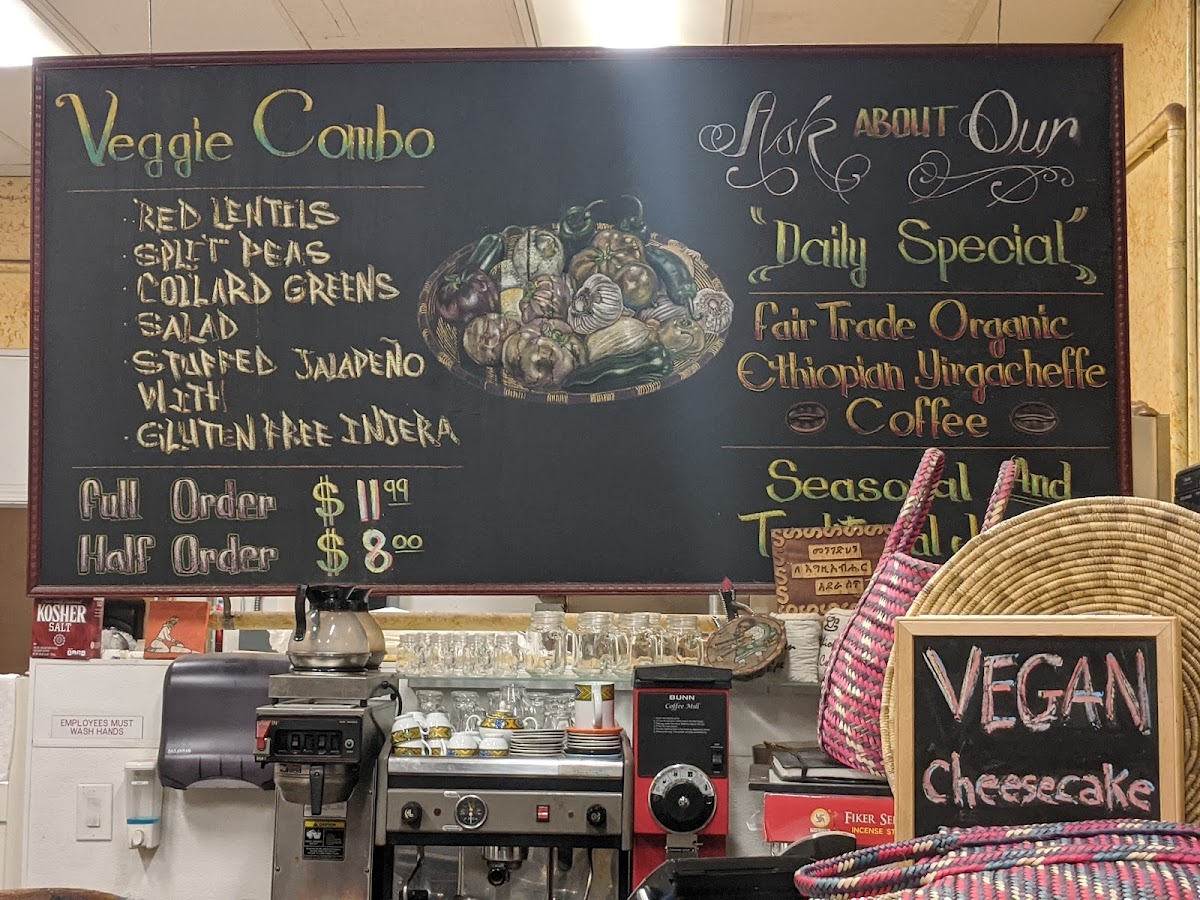 Veggie Combo
· RED LENTILS
· SPLIT PEAS
· COLLARD GREENS
· SALAD
· STUFFED JALAPEÑO
WITH
· GLUTEN FREE INJERA
Full Order $ 11.99
Half Order $ 8.00
Ask ABOUT Our
"Daily Special"
Fair Trade Organic
Ethiopian Yirgacheffe
Coffee
Seasonal And
KOSHER
SALT
EMPLOYEES MUST
WASH HANDS
CAUTION
BUNN
Coffee Mill
መንገድህን
ለ እግዚአብሔር
አደራ ስጥ
FIKER
INCENSE
VEGAN
Cheesecake